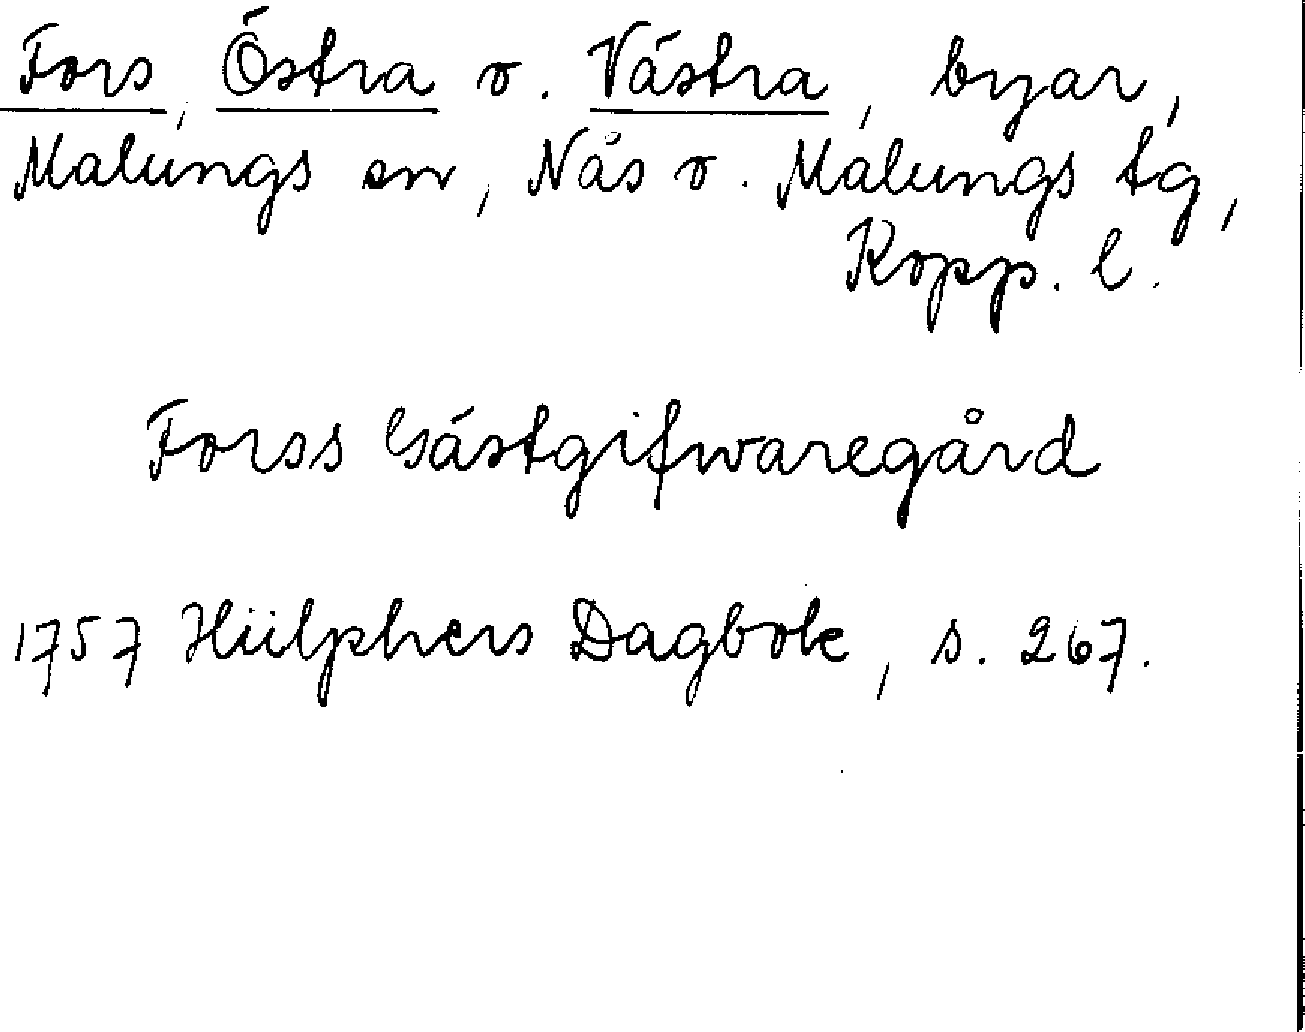 Fors, Östra o. Västra, byar,
Malungs sn, Nås o. Malungs tg,
Kopp. l.
Forss Gästgifwaregård
1757 Hülphers Dagbok, s. 267.